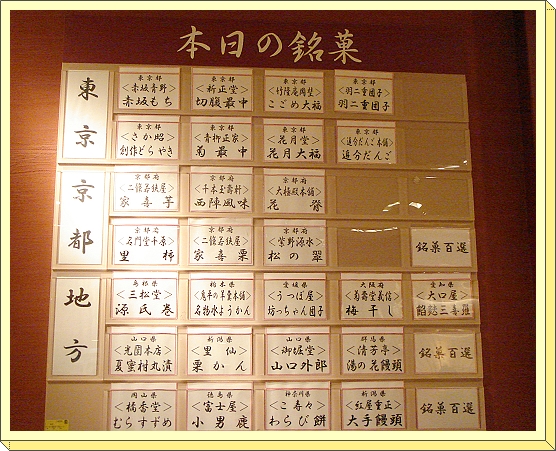 本日の銘菓
東京
東京都
<赤坂青野>
赤坂もち
東京都
<新正堂>
切腹最中
東京都
<竹隆庵岡埜>
こごめ大福
東京都
<羽二重団子>
羽二重団子
東京都
<さか昭>
創作どらやき
東京都
<青柳正家>
菊最中
東京都
<花月堂>
花月大福
東京都
<追分だんご本舗>
追分だんご
京都
京都府
<二條若狭屋>
家喜芋
京都府
<千本玉壽軒>
西陣風味
京都府
<大極殿本舗>
花脊
京都府
<名門堂千原>
里柿
京都府
<二條若狭屋>
家喜栗
京都府
<紫野源水>
松の翠
銘菓百選
地方
島根県
<三松堂>
源氏巻
栃木県
名物水ようかん
愛媛県
<うつぼ屋>
坊っちゃん団子
大阪府
<菊壽堂義信>
梅干し
愛知県
<大口屋>
餡麩三喜羅
山口県
<光國本店>
夏蜜柑丸漬
新潟県
<里仙>
栗かん
山口県
<御堀堂>
山口外郎
群馬県
<清芳亭>
湯の花饅頭
銘菓百選
岡山県
<橘香堂>
むらすずめ
徳島県
<富士屋>
小男鹿
神奈川県
<こ寿々>
わらび餅
新潟県
<紅屋重正>
大手饅頭
銘菓百選